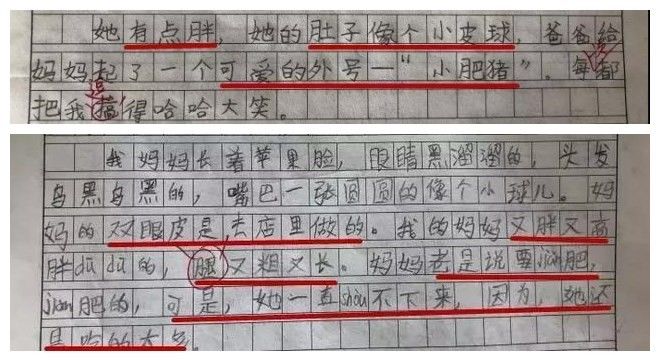 她有点胖，她的肚子像个小皮球，爸爸给
妈妈起了一个可爱的外号—“小肥猪”。每都
逗
把我搞得哈哈大笑。
我妈妈长着苹果脸，眼睛黑溜溜的，头发
乌黑乌黑的，嘴巴一张圆圆的像个小球儿。妈
妈的双眼皮是去店里做的。我的妈妈又胖又高
胖dū dū的，腿又粗又长。妈妈老是说要jiǎn肥，
jiǎn肥的，可是，她一直shòu不下来，因为，她还
是吃的太多。